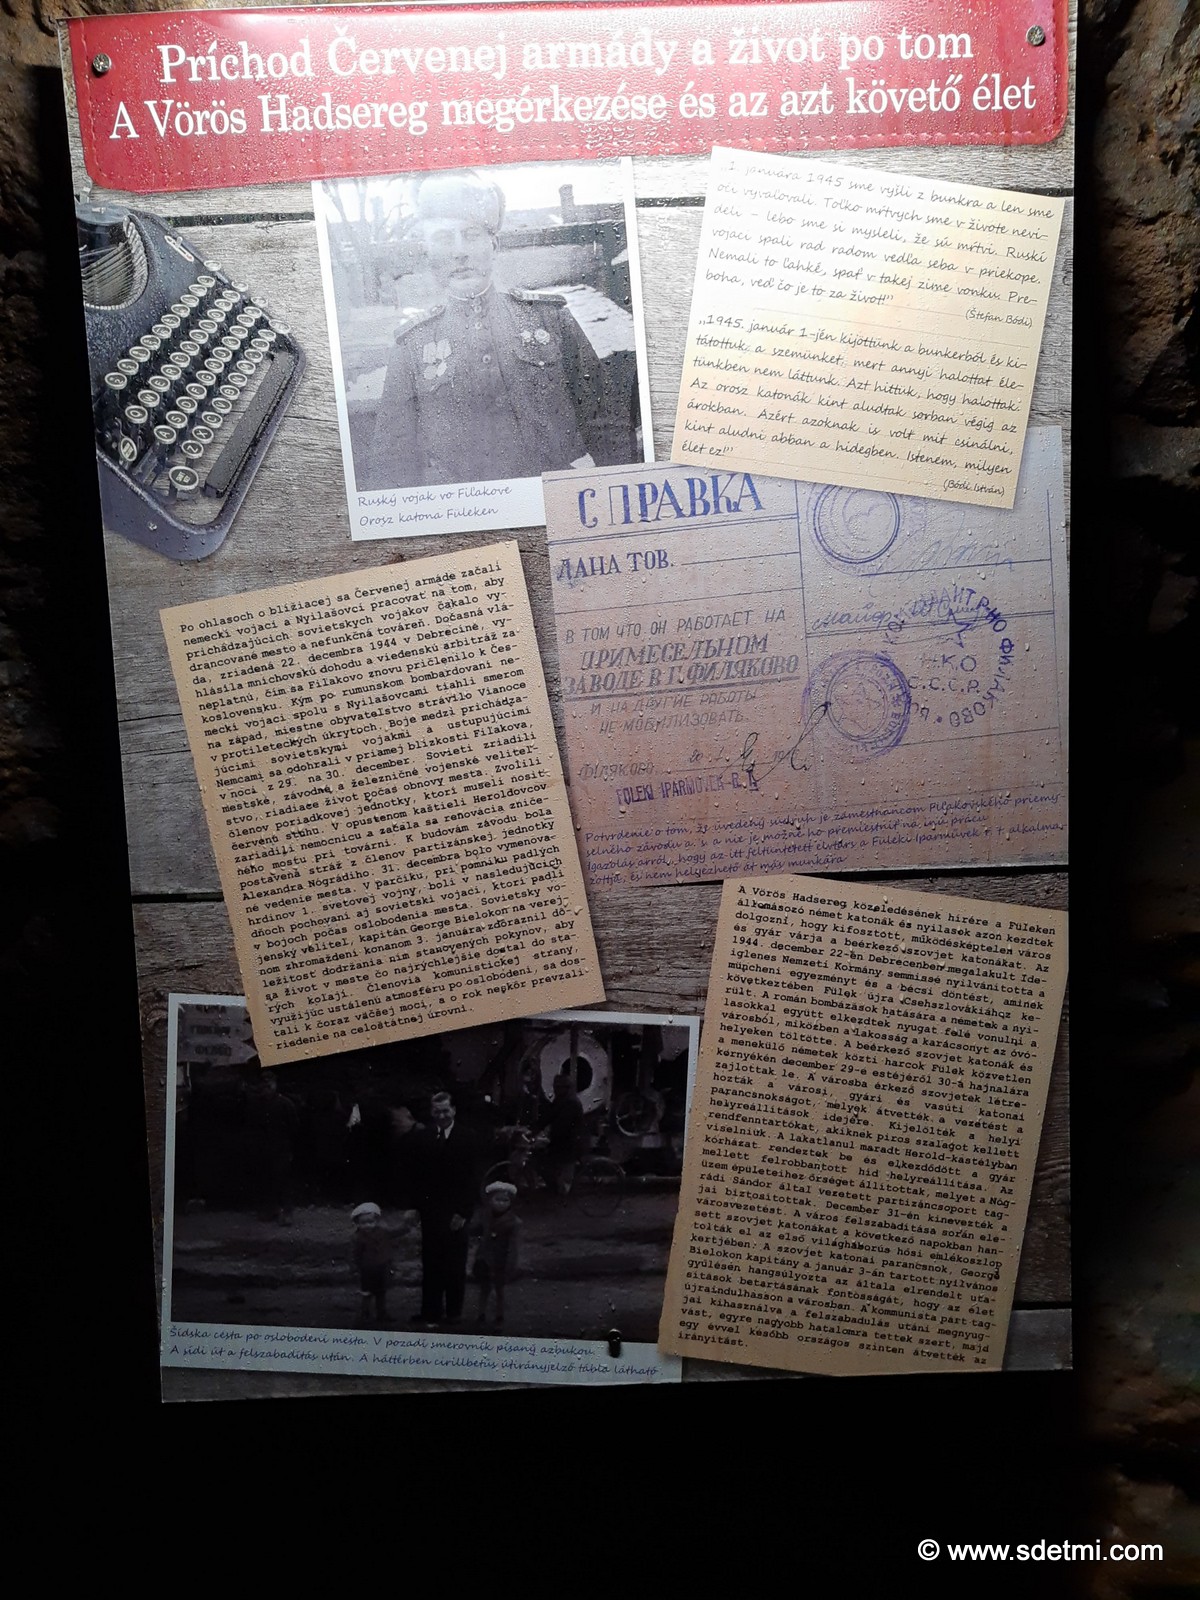 Príchod Červenej armády a život po tom
A Vörös Hadsereg megérkezése és az azt követő élet
„1 januára 1945 sme vyšli z bunkra a len sme
oči vyvaľovali. Toľko mŕtvych sme v živote nevi-
deli – lebo sme si mysleli, že sú mŕtvi. Ruskí
vojaci spali rad radom vedľa seba v priekope.
Nemali to ľahké, spať v takej zime vonku. Pre-
boha, veď čo je to za život!"
(Štefan Bódi)
„1945. január 1-jén kijöttünk a bunkerból és ki-
tátottuk a szemünket, mert annyi halottat éle-
tünkben nem láttunk. Azt hittük, hogy halottak.
Az orosz katonák kint aludtak sorban végig az
árokban. Azért azoknak is volt mit csinálni,
kint aludni abban a hidegben. Istenem, milyen
élet ez!"
(Bódi István)
Ruský vojak vo Fiľakove
Orosz katona Füleken
СПРАВКА
ДАНА ТОВ.
В ТОМ ЧТО ОН РАБОТАЕТ НА
ПРИМЕСЕЛЬНОМ
ЗАВОДЕ В Г. ФИЛЯКОВО
И НА ДРУГИЕ РАБОТЫ
НЕ МОБИЛИЗОВАТЬ.
ФИЛЯКОВО
FÜLEKI IPARMŰVEK R. T.
Н.К.О
С.С.С.Р.
Potvrdenie o tom, že uvedený súdruh je zamestnancom Fiľakovského priemy-
selného závodu a. s. a nie je možné ho premiestniť na inú prácu
Igazolás arról, hogy az itt feltüntetett elvtárs a Füleki Iparművek r. t. alkalma-
zottja, és nem helyezhető át más munkára
Po ohlasoch o blížiacej sa Červenej armáde začali
nemeckí vojaci a Nyilašovci pracovať na tom, aby
prichádzajúcich sovietskych vojakov čakalo vy-
drancované mesto a nefunkčná továreň. Dočasná vlá-
da, zriadená 22. decembra 1944 v Debrecíne, vy-
hlásila mníchovskú dohodu a viedenskú arbitráž za
neplatnú, čím sa Fiľakovo znovu pričlenilo k Čes-
koslovensku. Kým po rumunskom bombardovaní ne-
meckí vojaci spolu s Nyilašovcami tiahli smerom
na západ, miestne obyvateľstvo strávilo Vianoce
v protileteckých úkrytoch. Boje medzi prichádza-
júcimi sovietskymi vojakmi a ustupujúcimi
Nemcami sa odohrali v priamej blízkosti Fiľakova,
v noci z 29. na 30. december. Sovieti zriadili
mestské, závodné a železničné vojenské veliteľ-
stvo, riadiace život počas obnovy mesta. Zvolili
členov poriadkovej jednotky, ktorí museli nosiť
červenú stuhu. V opustenom kaštieli Heroldovcov
zariadili nemocnicu a začala sa renovácia zniče-
ného mostu pri továrni. K budovám závodu bola
postavená stráž z členov partizánskej jednotky
Alexandra Nógrádiho. 31. decembra bolo vymenova-
né vedenie mesta. V parčíku, pri pomníku padlých
hrdinov 1. svetovej vojny, boli v nasledujúcich
dňoch pochovaní aj sovietski vojaci, ktorí padli
v bojoch počas oslobodenia mesta. Sovietsky vo-
jenský veliteľ, kapitán George Bielokon na verej-
nom zhromaždení konanom 3. januára zdôraznil dô-
ležitosť dodržania ním stanovených pokynov, aby
sa život v meste čo najrýchlejšie dostal do sta-
rých koľají. Členovia komunistickej strany,
využijúc ustálenú atmosféru po oslobodení, sa dos-
tali k čoraz väčšej moci, a o rok neskôr prevzali
riadenie na celoštátnej úrovni.
A Vörös Hadsereg közeledésének hírére a Füleken
állomásozó német katonák és nyilasok azon kezdtek
dolgozni, hogy kifosztott, működésképtelen város
és gyár várja a beérkező szovjet katonákat. Az
1944. december 22-én Debrecenben megalakult Ide-
iglenes Nemzeti Kormány semmissé nyilvánította a
müncheni egyezményt és a bécsi döntést, aminek
következtében Fülek újra Csehszlovákiához ke-
rült. A román bombázások hatására a németek a nyi-
lasokkal együtt elkezdtek nyugat felé vonulni a
városból, miközben a lakosság a karácsonyt az óvó-
helyeken töltötte. A beérkező szovjet katonák és
a menekülő németek közti harcok Fülek közvetlen
környékén december 29-e estéjéről 30-a hajnalára
zajlottak le. A városba érkező szovjetek létre-
hozták a városi, gyári és vasúti katonai
parancsnokságot, melyek átvették a vezetést a
helyreállítások idejére. Kijelölték a helyi
rendfenntartókat, akiknek piros szalagot kellett
viselniük. A lakatlanul maradt Herold-kastélyban
kórházat rendeztek be és elkezdődött a gyár
mellett felrobbantott híd helyreállítása. Az
üzem épületeihez őrséget állítottak, melyet a Nóg-
rádi Sándor által vezetett partizáncsoport tag-
jai biztosítottak. December 31-én kinevezték a
városvezetést. A város felszabadítása során ele-
sett szovjet katonákat a következő napokban han-
tolták el az első világháborús hősi emlékoszlop
kertjében. A szovjet katonai parancsnok, George
Bielokon kapitány a január 3-án tartott nyilvános
gyűlésén hangsúlyozta az általa elrendelt uta-
sítások betartásának fontosságát, hogy az élet
újraindulhasson a városban. A kommunista párt tag-
jai kihasználva a felszabadulás utáni megnyug-
vást, egyre nagyobb hatalomra tettek szert, majd
egy évvel később országos szinten átvették az
irányítást.
Šídska cesta po oslobodení mesta. V pozadí smerovník písaný azbukou
A sídi út a felszabadítás után. A háttérben cirillbetűs útirányjelző tábla látható
© www.sdetmi.com